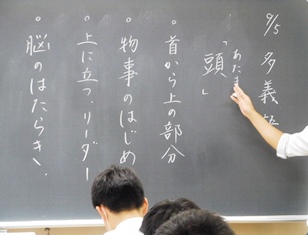 9/5 多義
あたま
「頭」
• 首から上の部分
• 物事のはじめ
• 上に立つ・リーダー
• 脳のはたらき、